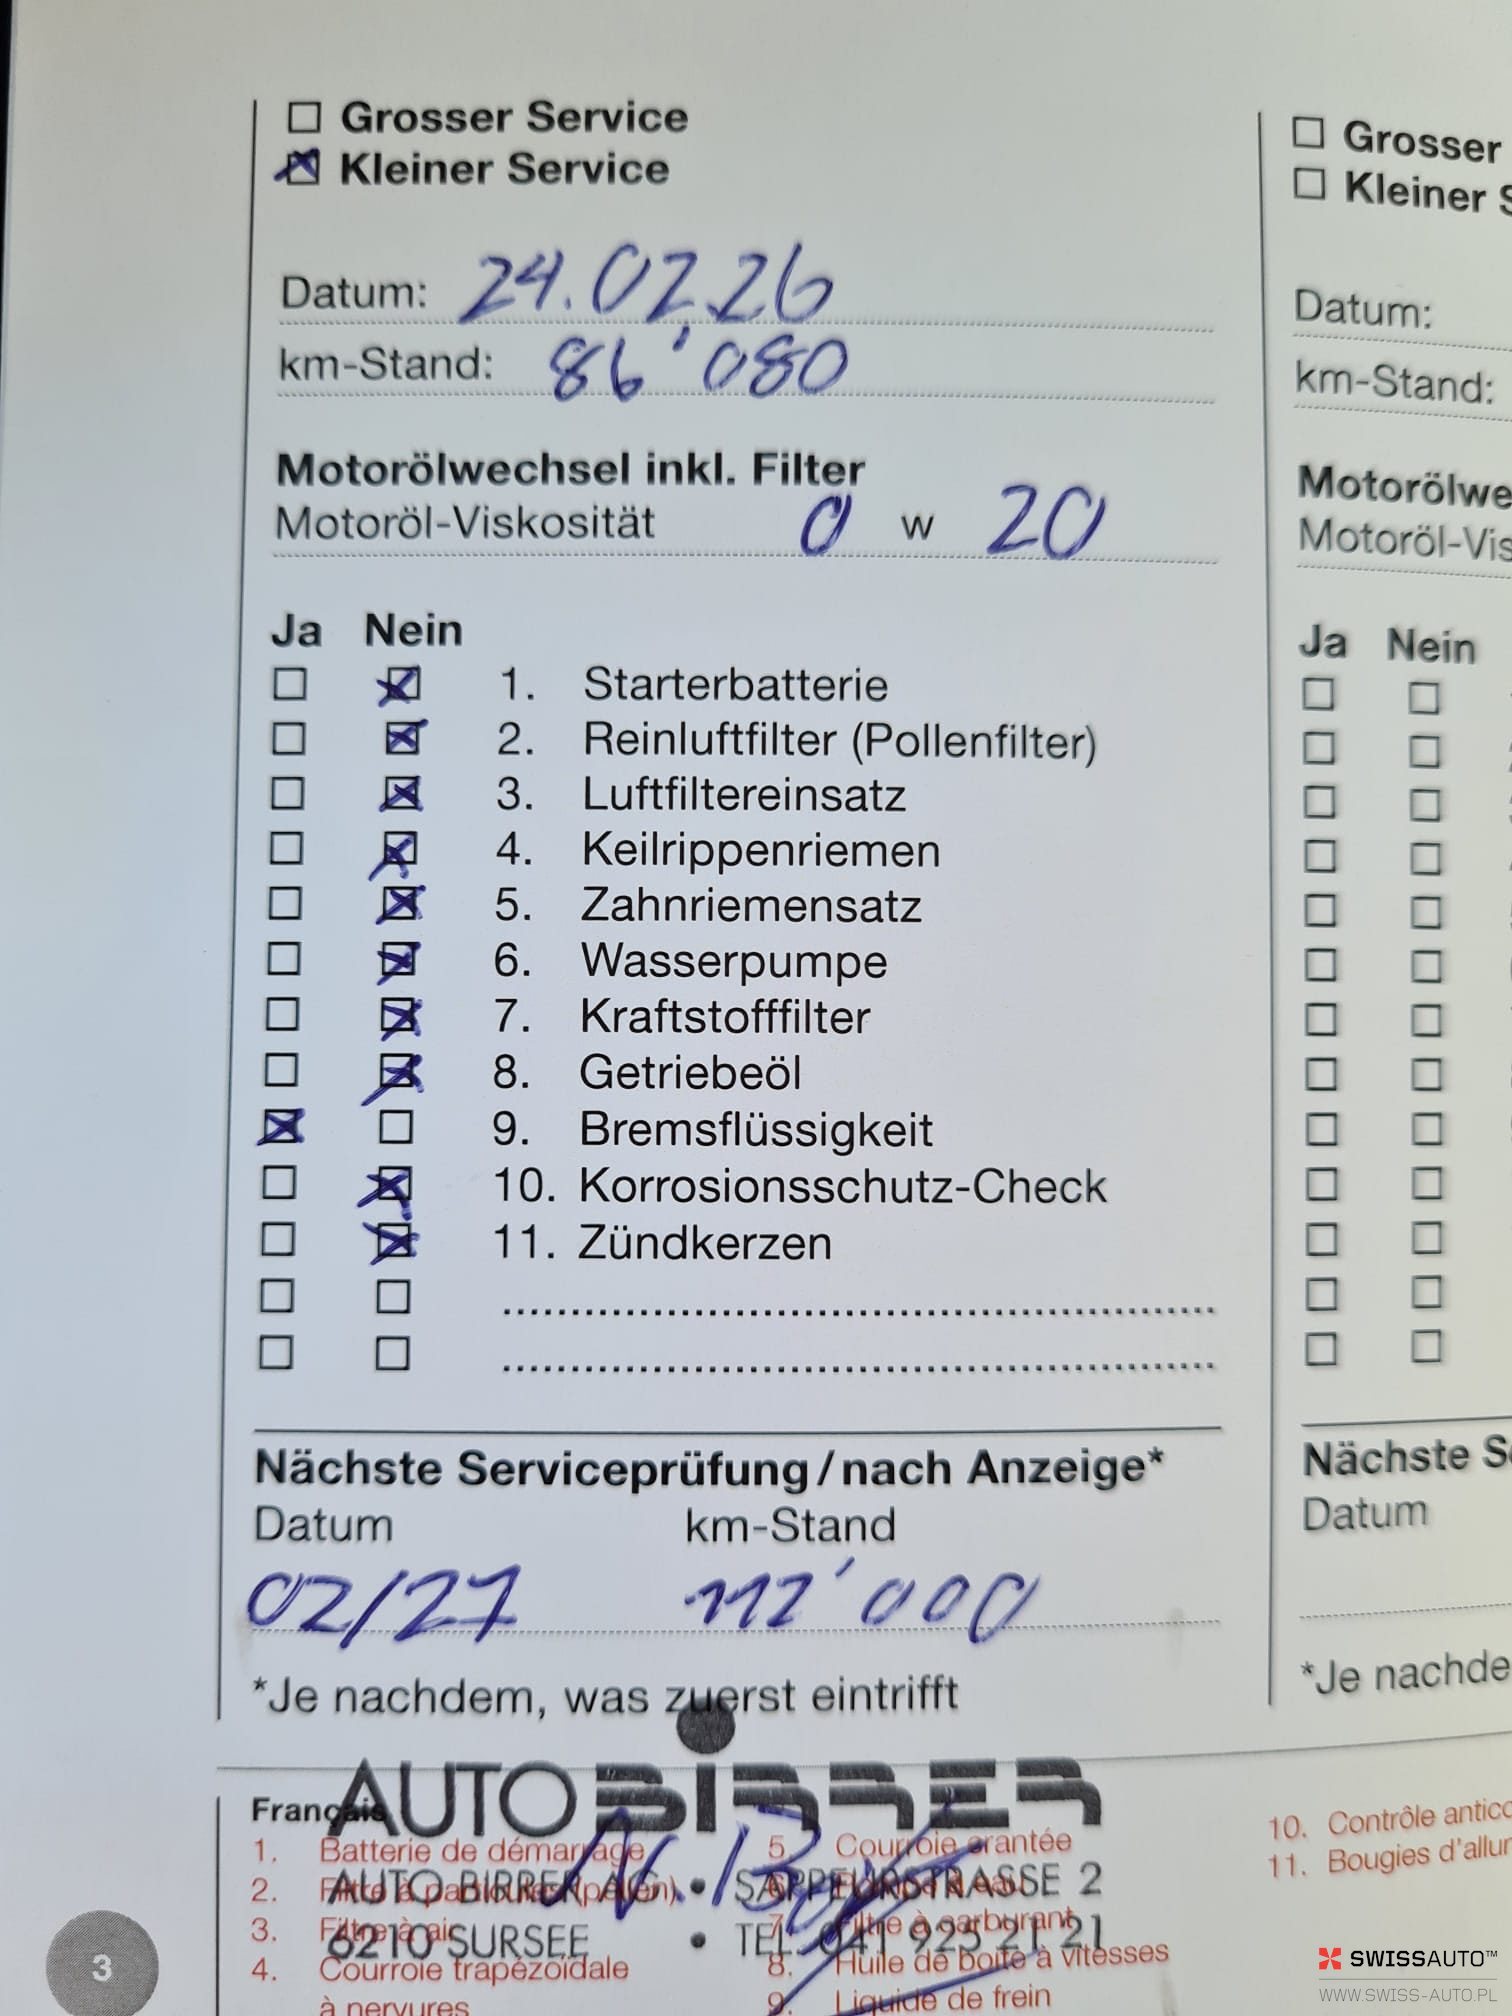 Grosser Service
Kleiner Service
Datum: 24.02.26
km-Stand: 86'080
Motorölwechsel inkl. Filter
Motoröl-Viskosität 0 w 20
Ja Nein
1. Starterbatterie
2. Reinluftfilter (Pollenfilter)
3. Luftfiltereinsatz
4. Keilrippenriemen
5. Zahnriemensatz
6. Wasserpumpe
7. Kraftstofffilter
8. Getriebeöl
9. Bremsflüssigkeit
10. Korrosionsschutz-Check
11. Zündkerzen
Nächste Serviceprüfung / nach Anzeige*
Datum km-Stand
02/27 112'000
*Je nachdem, was zuerst eintrifft
Grosser
Kleiner S
Datum:
km-Stand:
Motorölwe
Motoröl-Vis
Ja Nein
Nächste Se
Datum
*Je nachde
AUTO BIRRER
AUTO BIRRER AG. • SAPPEURSTRASSE 2
6210 SURSEE • TEL. 041 925 21 21
Français
1. Batterie de démarrage
2. Filtre à particules (pollen)
3. Filtre à air
4. Courroie trapézoïdale
à nervures
5. Courroie crantée
7. Filtre à carburant
8. Huile de boîte à vitesses
9. Liquide de frein
10. Contrôle antico
11. Bougies d'allum
3
SWISSAUTO™
WWW.SWISS-AUTO.PL